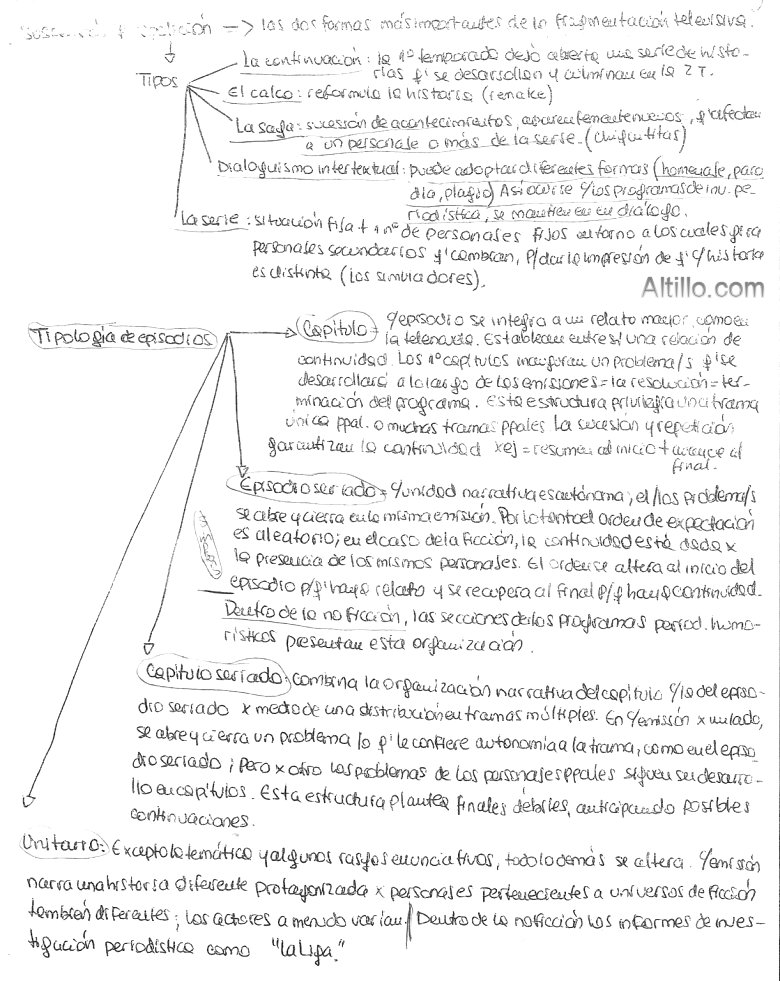 repetición —> las dos formas más importantes de la fragmentación televisiva.
TIPOS
La continuación: la 1º temporada dejó abierta una serie de histo-
rias q' se desarrollan y culminan en la 2 T.
El calco: reformula la historia (remake)
La saga: sucesión de acontecimientos, aparentemente nuevos, q' afectan
a un personaje o más de la serie. (Chiquititas)
Dialoguismo intertextual: puede adoptar diferentes formas (homenaje, paro
dia, plagio) Asi ocurre c/los programas de inv. pe-
riodística, se mantienen en diálogo.
La serie: situación fija + 1 nº de personajes fijos entorno a los cuales gira
personajes secundarios q' cambian, p/dar la impresión de q' c/historia
es distinta (los simuladores).
Altillo.com
Tipología de episodios
Capítulo = c/episodio se integra a un relato mayor, como en
la telenovela. Establecen entre sí una relación de
continuidad. Los 1º capítulos inauguran un problema/s q' se
desarrollará a lo largo de las emisiones = la resolución = ter-
minación del programa. Esta estructura privilegia una trama
única ppal. o muchas tramas ppales. La sucesión y repetición
garantizan la continuidad xej = resumen al inicio + avance al
final.
Episodio seriado = c/unidad narrativa es autónoma; el/los problema/s
se abre y cierra en la misma emisión. Por lo tanto el orden de expectación
es aleatorio; en el caso de la ficción, la continuidad está dada x
la presencia de los mismos personajes. El orden se altera al inicio del
episodio p/q' haya relato y se recupera al final p/q haya continuidad.
Dentro de la no ficción, las secciones de los programas period. humo-
rísticos presentan esta organización.
Capítulo seriado: combina la organización narrativa del capítulo c/la del episo-
dio seriado x medio de una distribución en tramas múltiples. En c/emisión x un lado,
se abre y cierra un problema lo q' le confiere autonomía a la trama, como en el episo
dio seriado; pero x otro los problemas de los personajes ppales siguen su desarro-
llo en capítulos. Esta estructura plantea finales débiles, anticipando posibles
continuaciones.
Unitario: Excepto lo temático y algunos rasgos enunciativos, todo lo demás se altera. c/emisión
narra una historia diferente protagonizada x personajes pertenecientes a universos de ficción
también diferentes; los actores a menudo varían / Dentro de la no ficción los informes de inves-
tigación periodística como "la Liga."